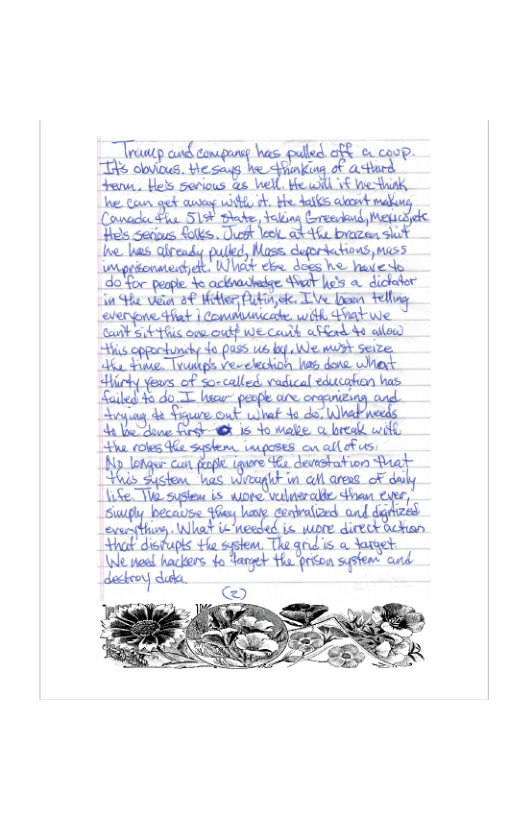 Trump and company has pulled off a coup.
It's obvious. He says he thinking of a third
term. He's serious as hell. He will if he think
he can get away with it. He talks about making
Canada the 51st state, taking Greenland, Mexico, etc
He's serious folks. Just look at the brazen shit
he has already pulled, Mass deportations, mass
imprisonment, etc. What else does he have to
do for people to acknowledge that he's a dictator
in the vein of Hitler, Putin, etc. I've been telling
everyone that i communicate with that we
can't sit this one out; we can't afford to allow
this opportunity to pass us by. We must seize
the time. Trump's re-election has done what
thirty years of so-called radical education has
failed to do. I hear people are organizing and
trying to figure out what to do. What needs
to be done first is to make a break with
the roles the system imposes on all of us.
No longer can people ignore the devastation that
this system has wrought in all areas of daily
life. The system is more vulnerable than ever,
simply because they have centralized and digitized
everything. What is needed is more direct action
that disrupts the system. The grid is a target.
We need hackers to target the prison system and
destroy data
(2)